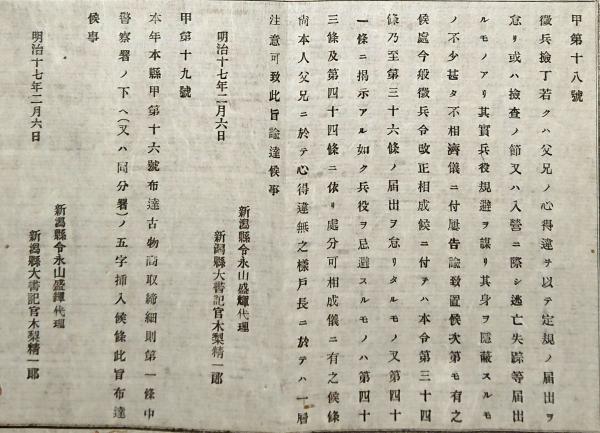 甲第十八號
徵兵撿丁若クハ父兄ノ心得違ヲ以テ定規ノ届出ヲ
怠リ或ハ撿査ノ節又ハ入營ニ際シ逃亡失踪等届出
ルモノアリ其實兵役規避ヲ謀リ其身ヲ隱蔽スルモ
ノ不少甚タ不相濟儀ニ付屢告諭致置候次第モ有之
候處今般徵兵令改正相成候ニ付テハ本令第三十四
條乃至第三十六條ノ届出ヲ怠リタルモノ又第四十
一條ニ掲示アル如ク兵役ヲ忌避スルモノハ第四十
三條及第四十四條ニ依リ處分可相成儀ニ有之候條
尙本人父兄ニ於テ心得違無之樣戸長ニ於テハ一層
注意可致此旨諭達候事
明治十七年二月六日
新潟縣令永山盛輝代理
新潟縣大書記官木梨精一郎
甲第十九號
本年本縣甲第十六號布達古物商取締細則第一條中
警察署ノ下ヘ(又ハ同分署)ノ五字挿入候條此旨布達
候事
明治十七年二月六日
新潟縣令永山盛輝代理
新潟縣大書記官木梨精一郎